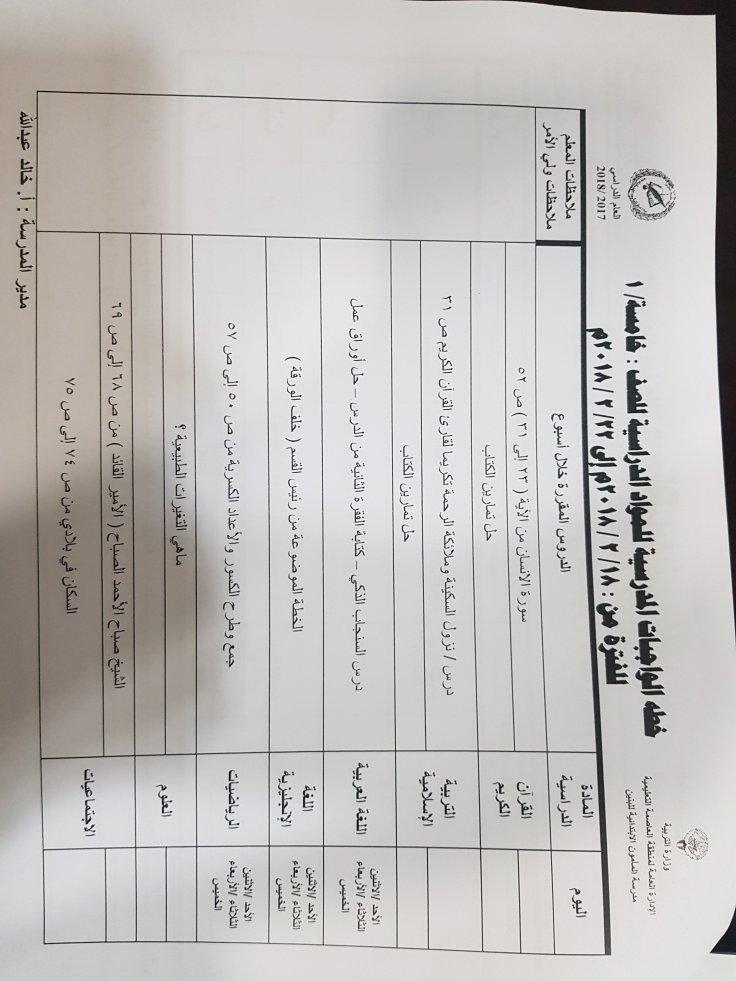 وزارة التربية
الإدارة العامة لمنطقة العاصمة التعليمية
مدرسة المأمون الابتدائية للبنين
العام الدراسي
2018/2017
خطه الواجبات المدرسية للمواد الدراسية للصف : خامسة/ ١
للفترة من : ١٨ / ٢ / ٢٠١٨م إلى ٢٢ / ٢ / ٢٠١٨م
اليوم
المادة الدراسية
الدروس المقررة خلال أسبوع
ملاحظات المعلم
ملاحظات ولي الأمر
القرآن الكريم
سورة الانسان من الأية ( ٢٣ إلى ٣١ ) ص ٥٢
حل تمارين الكتاب
التربية الإسلامية
درس / نزول السكينة وملائكة الرحمة تكريما لقارئ القرآن الكريم ص ٣١
حل تمارين الكتاب
الأحد /الاثنين
الثلاثاء /الأربعاء
الخميس
اللغة العربية
درس السنجاب الذكي – كتابة الفقرة الثانية من الدرس – حل أوراق عمل
الأحد /الاثنين
الثلاثاء /الأربعاء
الخميس
اللغة الإنجليزية
الخطة الموضوعة من رئيس القسم ( خلف الورقة )
الأحد /الاثنين
الثلاثاء /الأربعاء
الخميس
الرياضيات
جمع وطرح الكسور والأعداد الكسرية من ص ٥٠ إلى ص ٥٧
العلوم
ماهي التغيرات الطبيعية ؟
الاجتماعيات
الشيخ صباح الأحمد الصباح ( الأمير القائد ) من ص ٦٨ إلى ص ٦٩
السكان في بلادي من ص ٧٤ إلى ص ٧٥
مدير المدرسة : أ. خالد عبدالله